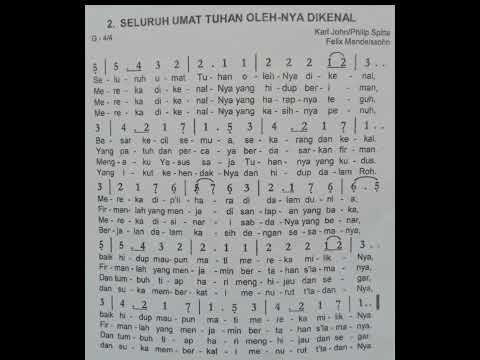 2. SELURUH UMAT TUHAN OLEH-NYA DIKENAL
Karl John/Philip Spitta
G - 4/4
Felix Mendelssohn
5 | 5 . 4 3 2 | 2 . 1 1 | 2 2 2 1 2 | 3 . .
Se - lu - ruh u - mat Tu - han o - leh-Nya di - ke - nal,
Me - re - ka di - ke - nal-Nya yang hi - dup ber - i - man,
Me - re - ka di - ke - nal-Nya yang ha - rap-nya te - guh,
Me - re - ka di - ke - nal-Nya yang ka - sih-nya pe - nuh,
3 | 4 . 2 1 7 | 1 . 5 3 | 4 . 2 1 7 | 1 . .
Ba - sar ke - cil se - mu - a, se - ka - rang dan ke - kal.
Yang pa - tuh dan per - ca - ya ber - da - sar - kan fir - man
Meng - a - ku Ye - sus sa - ja Tu - han-nya yang ku - dus.
Yang i - kut ke - hen - dak-Nya dan hi - dup da - lam Roh.
3 | 2 1 7 6 | 5 7 6 3 | 2 . 1 7 6 | 6 . 5
Me - re - ka di - p'li - ha - ra di da - lam du - ni - a;
Fir - man - lah yang men - ja - di san - tap - an yang ba - ka,
Me - re - ka di - si - nar - i sab - da - Nya yang be - nar,
Ber - ja - lan da - lam ka - sih de - ngan se - sa - ma - nya,
5 | 5 . 4 3 2 | 2 . 1 1 | 2 2 2 1 2 | 3 . .
baik hi - dup mau-pun ma - ti me - re - ka mi - lik - Nya,
Fir - man-lah yang men - ja - min ber - ta - han s'la-ma - nya,
Dan tum - buh ti - ap ha - ri meng - hi - jau dan se - gar,
dan su - ka mem - ber - kat - i me - nu - rut t'la - dan - Nya.
3 | 4 . 2 1 7 | 1 . 5 3 | 4 . 2 1 7 | 1 . .
baik hi - dup mau - pun ma - ti me - re - ka mi - lik - Nya.
Fir - man-lah yang men - ja - min ber - ta - han s'la-ma - nya.
Dan tum - buh ti - ap ha - ri meng - hi - jau dan se - gar.
dan su - ka mem - ber - kat - i me - nu - rut t'la - dan-Nya.